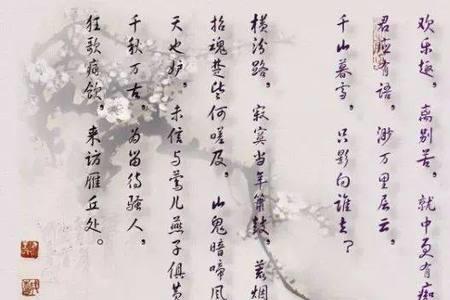 欢乐趣，离别苦，就中更有痴
君应有语，渺万里层云，
千山暮雪，只影向谁去？
横汾路，寂寞当年箫鼓，荒烟
招魂楚些何嗟及，山鬼暗啼风
天也妒，未信与莺儿燕子俱黄
千秋万古，为留待骚人，
狂歌痛饮，来访雁丘处。